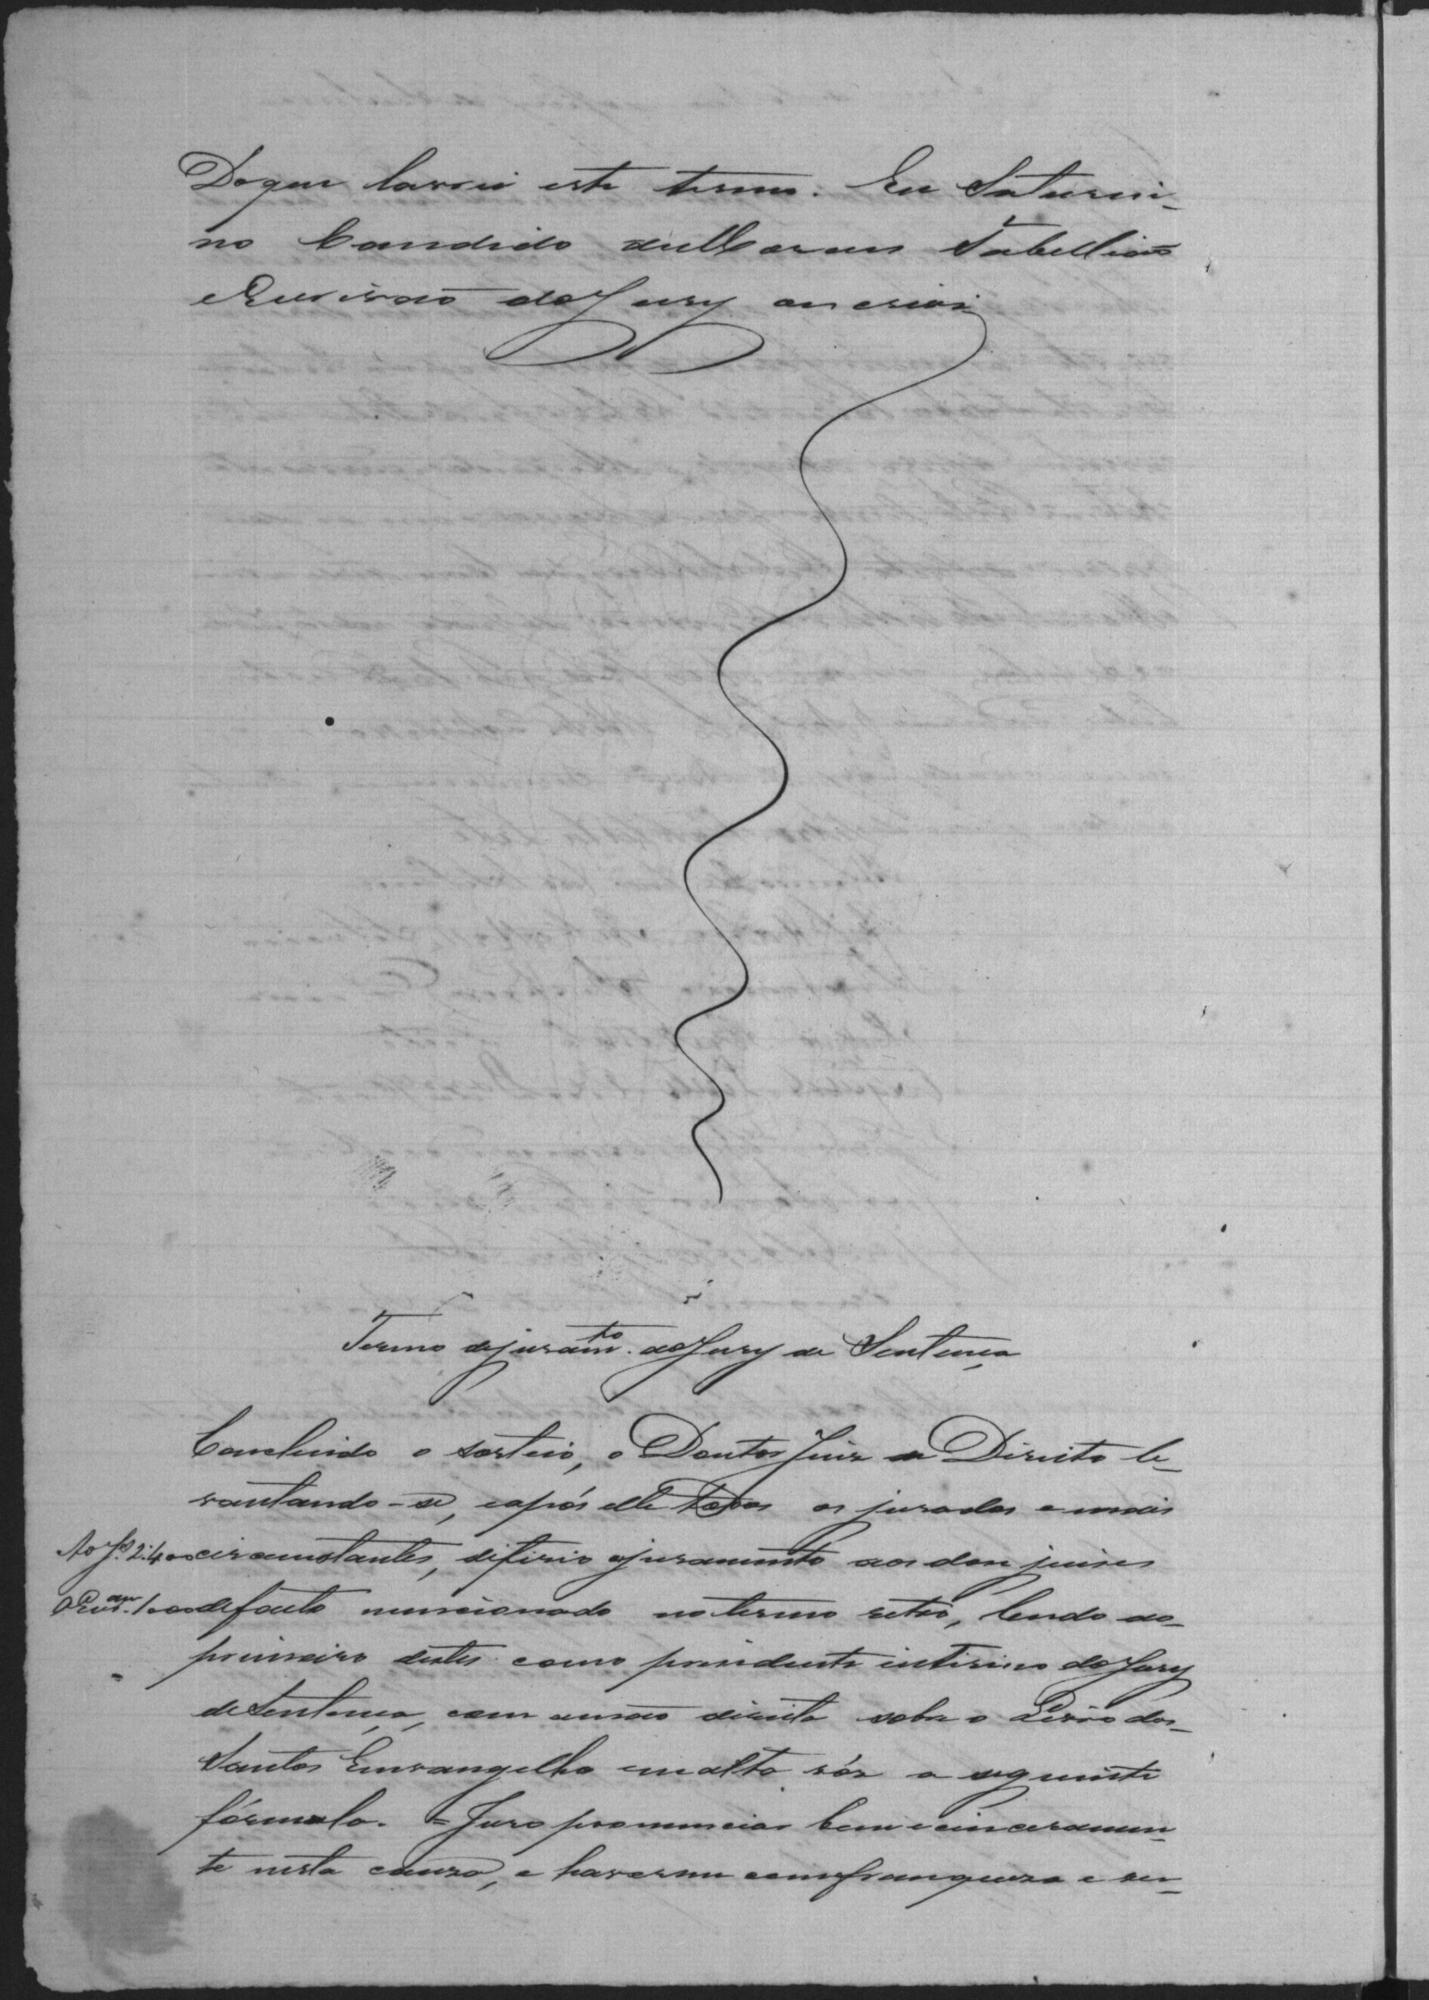 Do que lavrei este termo. Eu Saturni-
no Candido de Moraes Tabellião
e Escrivão do Jury o escrevi
Termo de juramto. do Jury de Sentença
Concluido o sorteio, o Doutor Juiz de Direito le-
vantando-se, e após elle todos os jurados e mais
Ao Jz. 2:400 circunstantes, diferio o juramento aos doze juizes
Escram. 1000 de facto mencionado no termo retro, lendo ao
primeiro destes como prezidente interino do Jury
de Sentença, com a mão direita sobre o Livro dos
Santos Envangelho em alta vóz a seguinte
fórmula. = Juro pronunciar bem e cinceramen-
te nesta cauza, e haver-me com franqueza e ver-